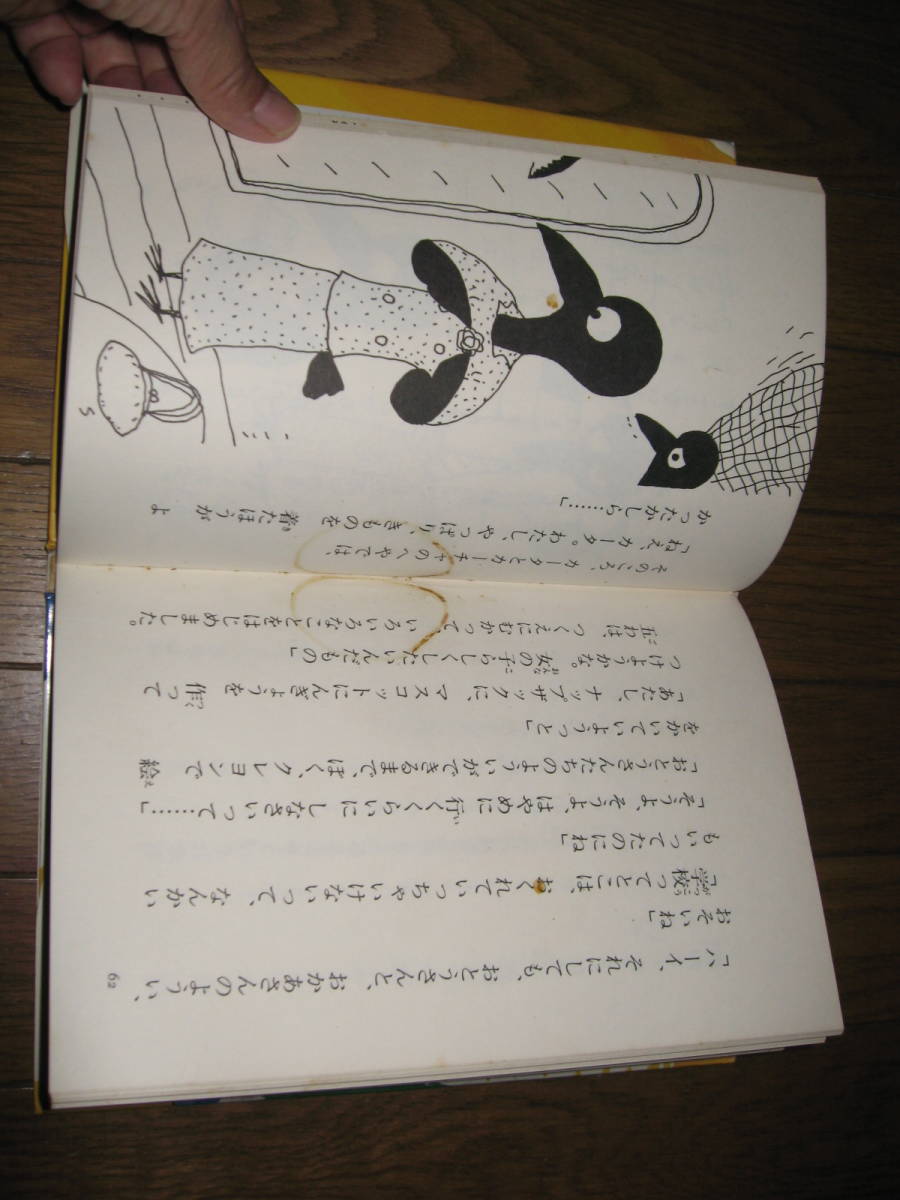 「ハーイ、それにしても、おとうさんと、おかあさんのようい、
おそいね」
「学校ってとこは、おくれていっちゃいけないって、なんかい
もいってたのにね」
「そうよ、そうよ、はやめに行くくらいに しなさいって……」
「おとうさんたちのよういができるまで、ぼく、クレヨンで 絵
をかいていようっと」
「あたし、ナップザックに、マスコットにんぎょうを 作って
つけようかな。女の子らしくしたいんだもの」
五わは、つくえにむかって、いろいろなことをはじめました。
62
そのころ、カータとカーチャのへやでは、
「ねえ、カータ。わたし、やっぱり、きものを 着たほうが よ
かったかしら……」